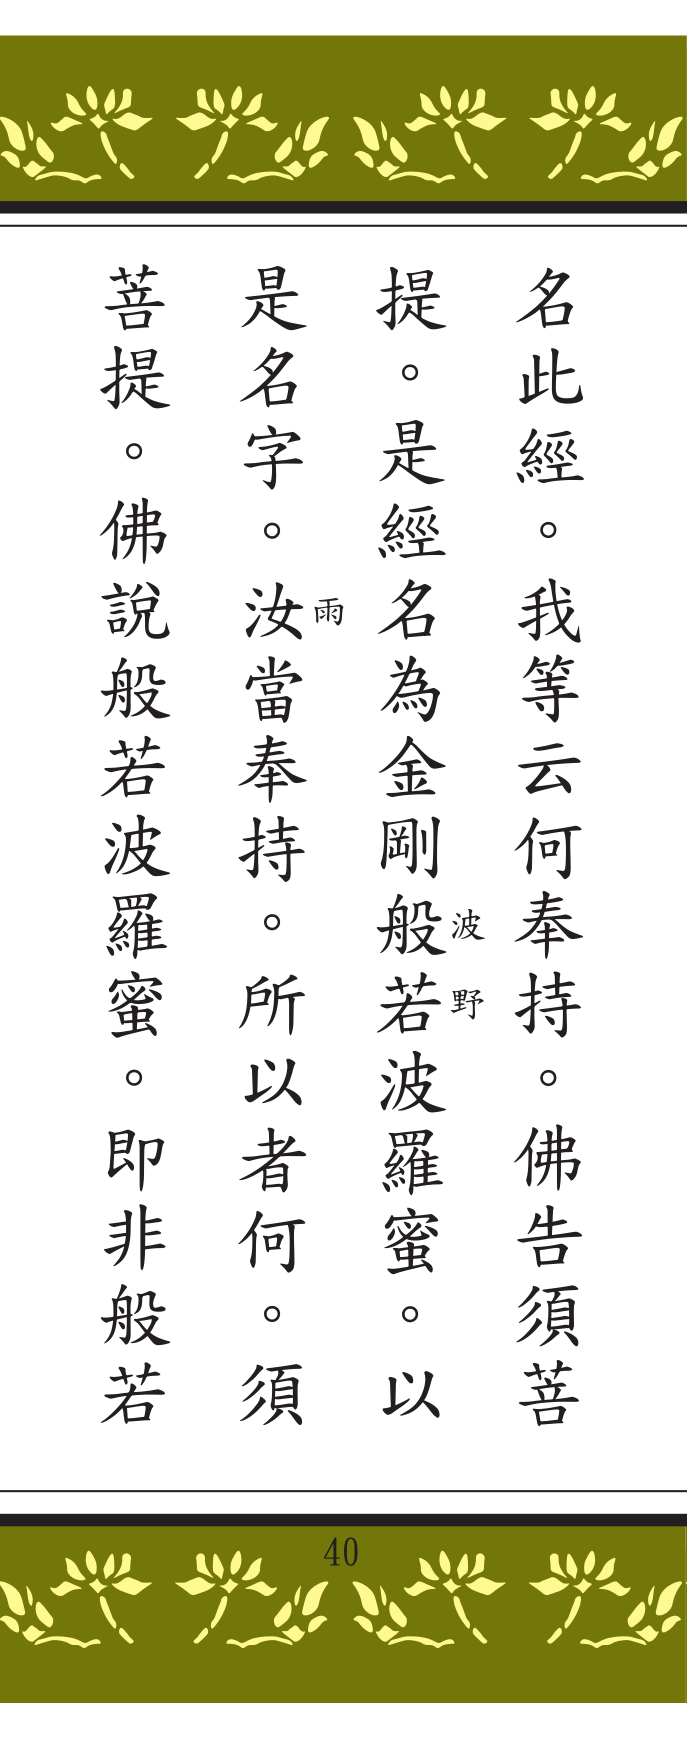 名此經。我等云何奉持。佛告須菩
提。是經名為金剛般若波羅蜜。以
波野
是名字。汝當奉持。所以者何。須
雨
菩提。佛說般若波羅蜜。即非般若
40